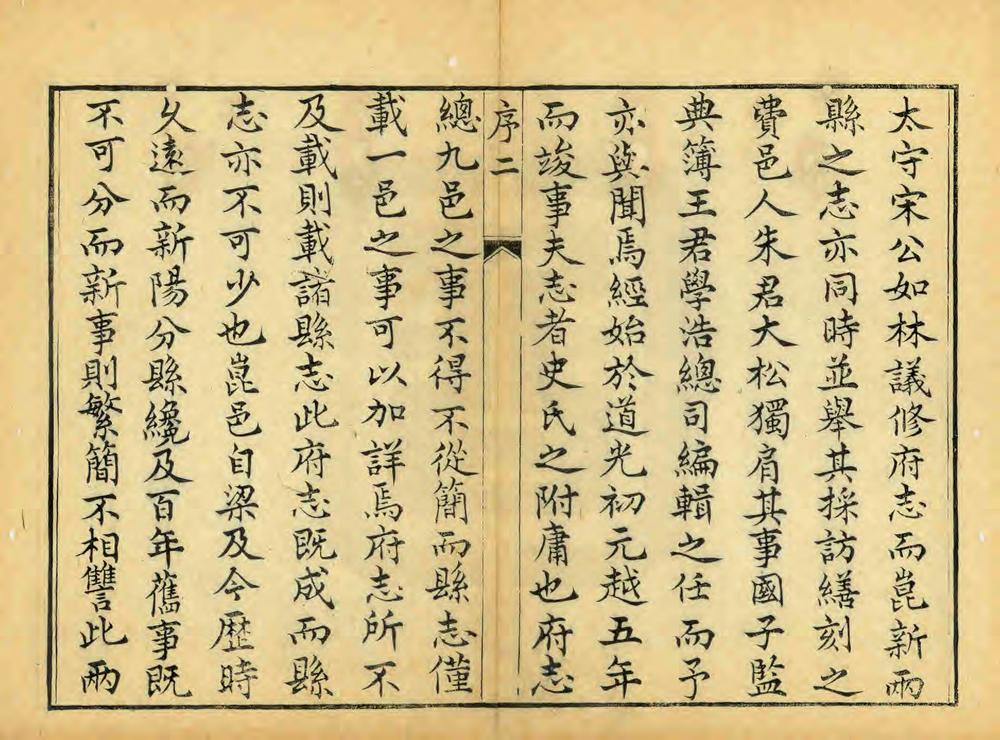 太守宋公如林議修府志而崑新兩
縣之志亦同時並舉其採訪繕刻之
費邑人朱君大松獨肩其事國子監
典簿王君學浩總司編輯之任而予
亦與聞焉經始於道光初元越五年
而竣事夫志者史氏之附庸也府志
序二
總九邑之事不得不從簡而縣志僅
載一邑之事可以加詳焉府志所不
及載則載諸縣志此府志既成而縣
志亦不可少也崑邑自梁及今歷時
久遠而新陽分縣纔及百年舊事既
不可分而新事則繁簡不相讐此兩